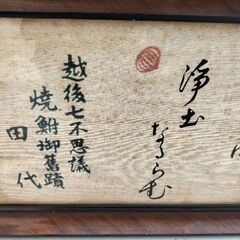 浄土
ならむ
越後七不思議
焼鮒御旧蹟
田代